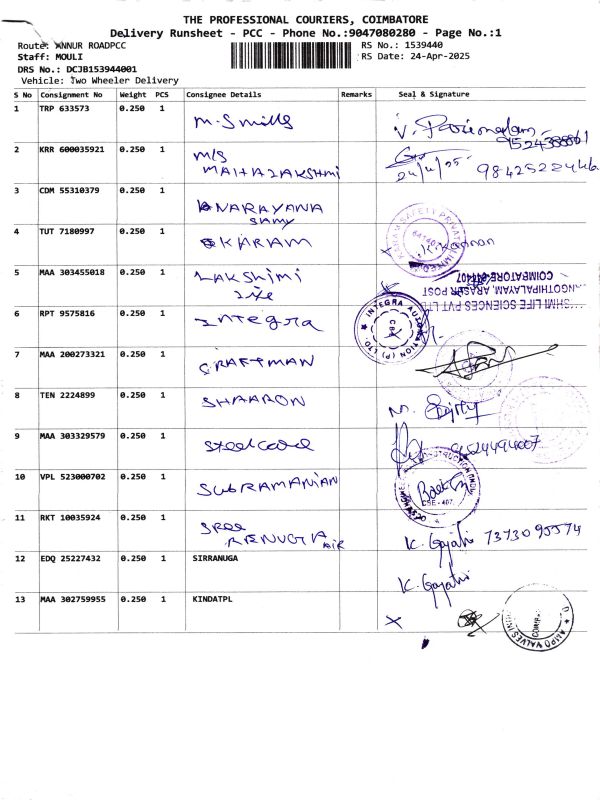 THE PROFESSIONAL COURIERS, COIMBATORE
Delivery Runsheet - PCC - Phone No.:9047080280 - Page No.:1
Route: ANNUR ROADPCC
RS No.: 1539440
Staff: MOULI
RS Date: 24-Apr-2025
DRS No.: DCJB153944001
Vehicle: Two Wheeler Delivery
S No Consignment No Weight PCS Consignee Details Remarks Seal & Signature
1 TRP 633573 0.250 1 M.S mills
2 KRR 600035921 0.250 1 M/S 24/4/25
MAHALAKSHMI
3 CDM 55310379 0.250 1 NARAYANA
SAMY
4 TUT 7180997 0.250 1 KARAM K. Kannan
5 MAA 303455018 0.250 1 LAKSHIMI
life
COIMBATORE-641407
ANGOTHIPALAYAM, ARASUR POST
SHMI LIFE SCIENCES PVT LTD
6 RPT 9575816 0.250 1 Integra INTEGRA AUTOMATION (P) LTD. CBE
7 MAA 200273321 0.250 1 CRAFTMAN
8 TEN 2224899 0.250 1 SHAARON
9 MAA 303329579 0.250 1 Steel care 9524494007
10 VPL 523000702 0.250 1 SUBRAMANIAN CSE - 407
11 RKT 10035924 0.250 1 SREE
RENUGA AIR K. Gajathi 7373095574
12 EDQ 25227432 0.250 1 SIRRANUGA K. Gajathi
13 MAA 302759955 0.250 1 KINDATPL